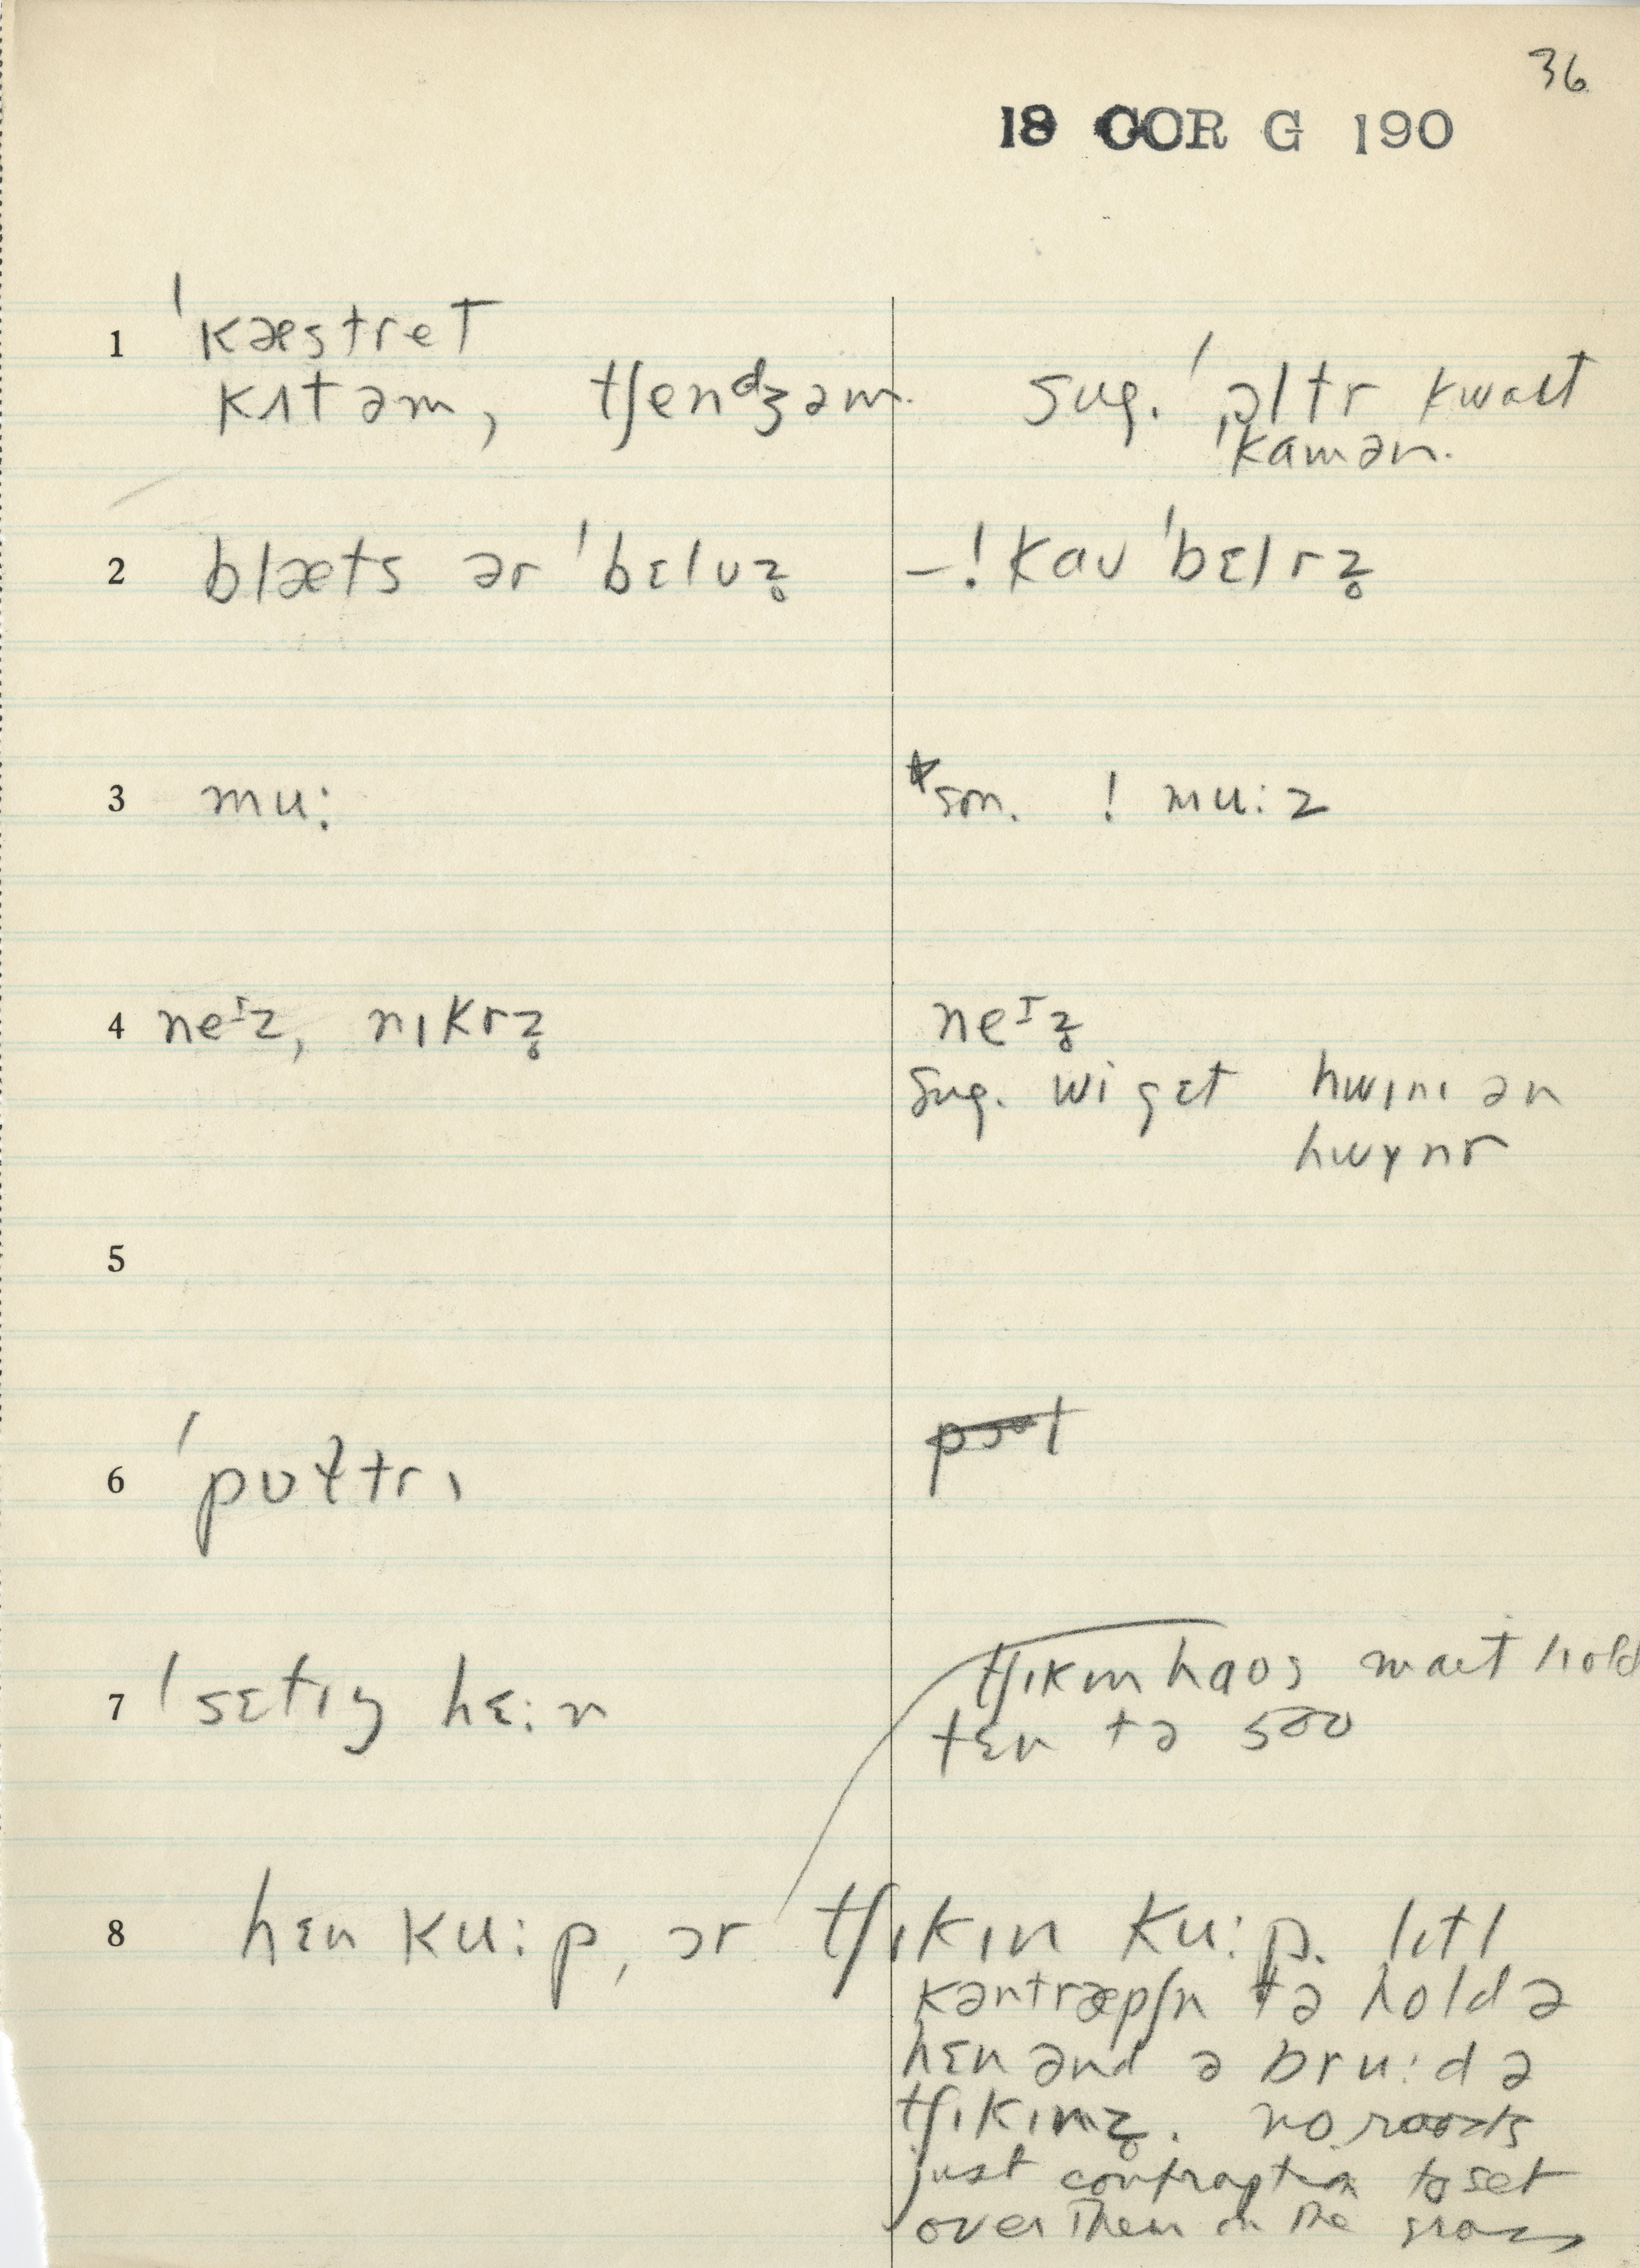 36
18 COR G 190
1 ˈkæstret
kʌt əm, tʃendʒəm. sug. ˈɔltr kwaɪt
ˈkamən.
2 blæts ər ˈbɛluz̥ –! kau ˈbɛlrz̥
3 mu: *son. ! mu:z
4 neᴵz, nɪkrz̥ neᴵz̥
sug. wi gɛt hwɪnɪ ən
hwɪnr
5
6 ˈpʊɫtrɪ
7 ˈsɛtɪŋ hɛ:n tʃɪkɪn haʊs maɪt hold
tɛn tə 500
8 hɛn ku:p, ɔr tʃɪkɪn ku:p. lɪtl
kəntræpʃn tə hold ə
hɛn ənd ə bru:d ə
tʃɪkɪnz̥. no roosts
just contraption to set
over them on the grass